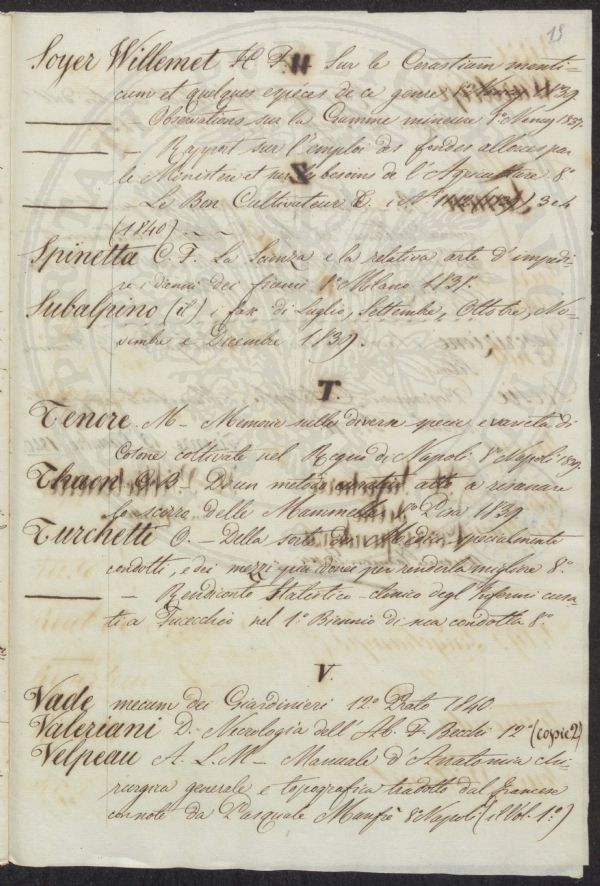 19
Soyer Willemet H. F. Sur le Cerastium manti-
cum et quelques especes de ce genre 8° Nancy 1839
— Observations sur la Gramme mineure 8° Nancy 1837.
— Rapport sur l'emploi des fondes alloues par
le Ministere et sur les besoins de l'Agriculture 8°
— Le Bon Cultivateur 3 e 4
(1840)
Spinetta C. F. La Scienza e la relativa arte d'impedi-
re i danni dei fiumi 8° Milano
Subalpino (il) i fax. di Luglio, Settembre, Ottobre, No-
vembre e Dicembre 1839.
T.
Tenore M— Memoria sulle diverse specie e varietà di
Cotone coltivate nel Regno di Napoli 8° Napoli 1839.
Thaon — Di un metodo curativo atto a risanare
lo scirro delle Mammelle 8° Pisa 1839
Turchetti O.— Della sorte dei Medici specialmente
condotti, e dei mezzi più idonei per renderla migliore 8°.
— Rendiconto Statistico-clinico degl'Infermi cura-
ti a Fucecchio nel 1° Biennio di sua condotta 8°
V.
Vade mecum dei Giardinieri 12° Prato 1840.
Valeriani D.— Necrologia dell'Ab. F. Becchi 12° (copie 2)
Velpeau A. L. M— Manuale d'Anatomia chi-
rurgica generale e topografica tradotto dal francese
con note da Pasquale Manfrè 8° Napoli (il Vol. 1°)